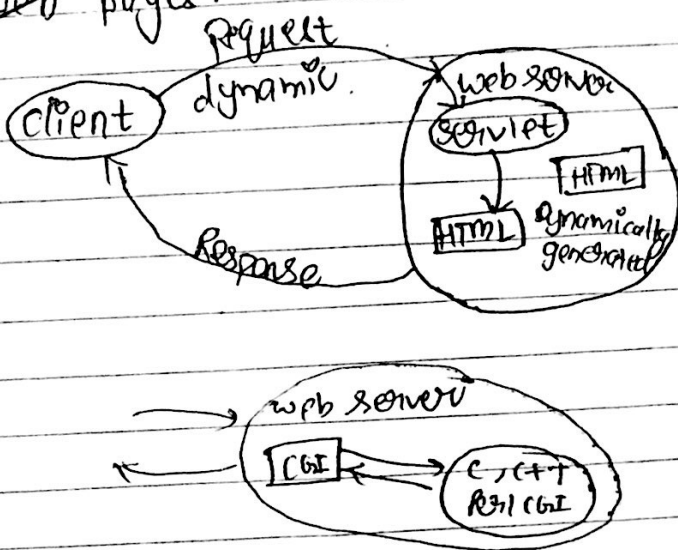 pages.
Request
dynamic.
client
web server
servlet
HTML
HTML
Dynamically
generated
Response
web server
CGI
C, C++
Perl CGI